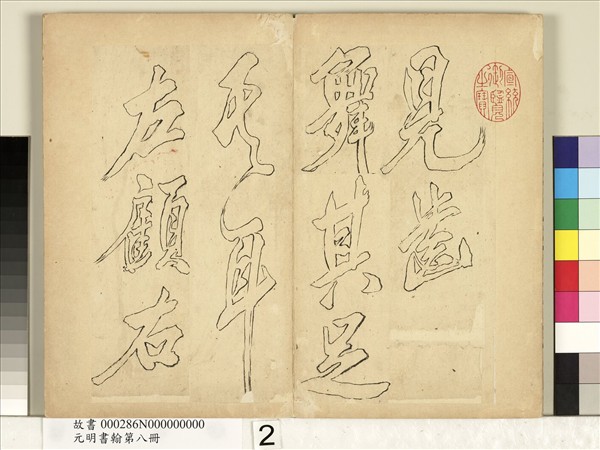 宣統御覽之寶
見齒
舞其足
耳
左顧右
故書 000286N000000000
元明書翰第八冊
2